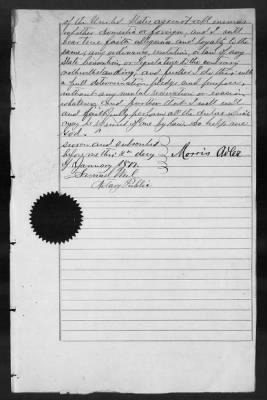 of the United States against all enemies
whether domestic or foreign, and I will
bear true faith allegiance and loyalty to the
same, any ordinance, resolution, or law of any
State Convention or Legislature to the contrary
notwithstanding, and further I do this with
a full determination, pledge and purpose,
without any mental reservation or evasion
whatever, And further that I will well
and faithfully perform all the duties which
may be required of me by law So help me
God."
Sworn and subscribed
before me this day
of January
Morris Adler
Samuel
Notary Public